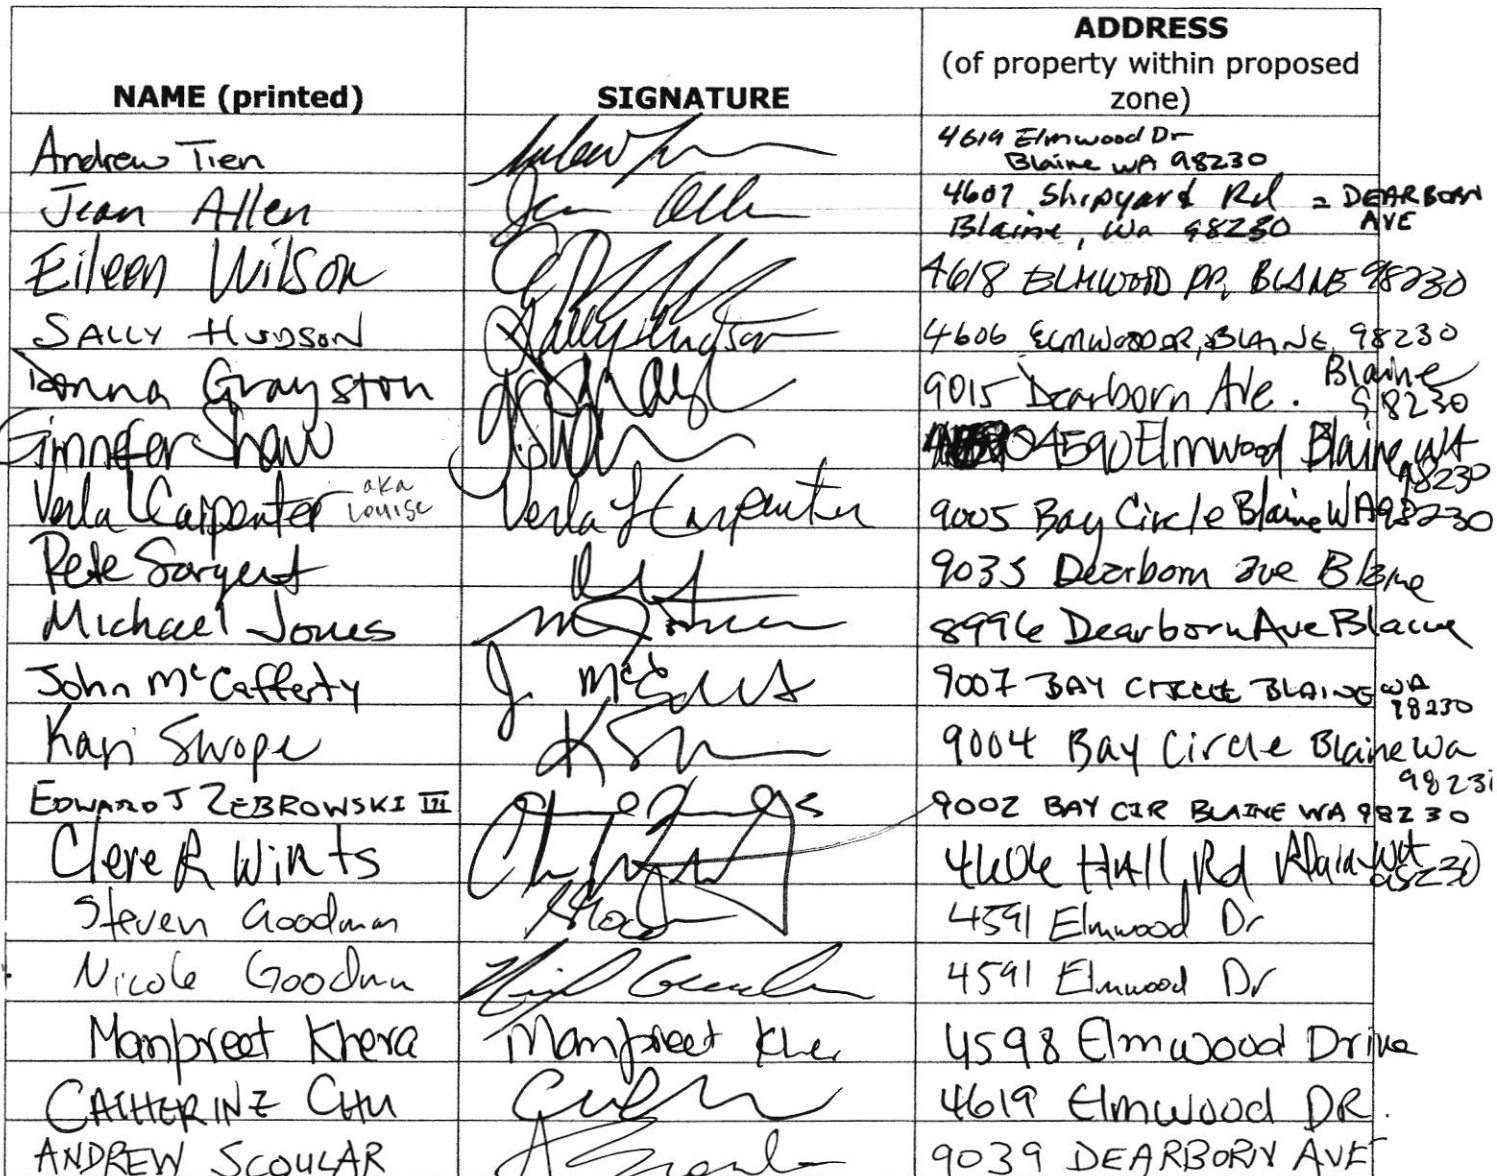 NAME (printed) SIGNATURE ADDRESS
(of property within proposed
zone)
Andrew Tien 4619 Elmwood Dr
Blaine WA 98230
Jean Allen Jean Allen 4607 Shipyard Rd = DEARBORN
AVE
Blaine, Wa 98230
Eileen Wilson 4618 ELMWOOD DR, BLAINE 98230
SALLY HUDSON 4606 ELMWOOD DR, BLAINE, 98230
Donna Grayston 9015 Dearborn Ave. Blaine
98230
Ginnefer Shaw 4590 Elmwood Blaine WA
98230
Verla L Carpenter aka
Louise Verla L Carpenter 9005 Bay Circle Blaine WA 98230
Pete Sargent 9035 Dearborn ave Blaine
Michael Jones 8996 Dearborn Ave Blaine
John McCafferty 9007 BAY CIRCLE BLAINE WA
98230
Kari Swope 9004 Bay Circle Blaine Wa
9823
EDWARD J ZEBROWSKI III 9002 BAY CIR BLAINE WA 98230
Clere R Wirts 4606 Hall Rd Blaine WA
98230
Steven Goodman 4591 Elmwood Dr
Nicole Goodman 4591 Elmwood Dr
Manpreet Khera Manpreet Kher 4598 Elmwood Drive
CATHERINE CHU 4619 Elmwood DR.
ANDREW SCOULAR 9039 DEARBORN AVE